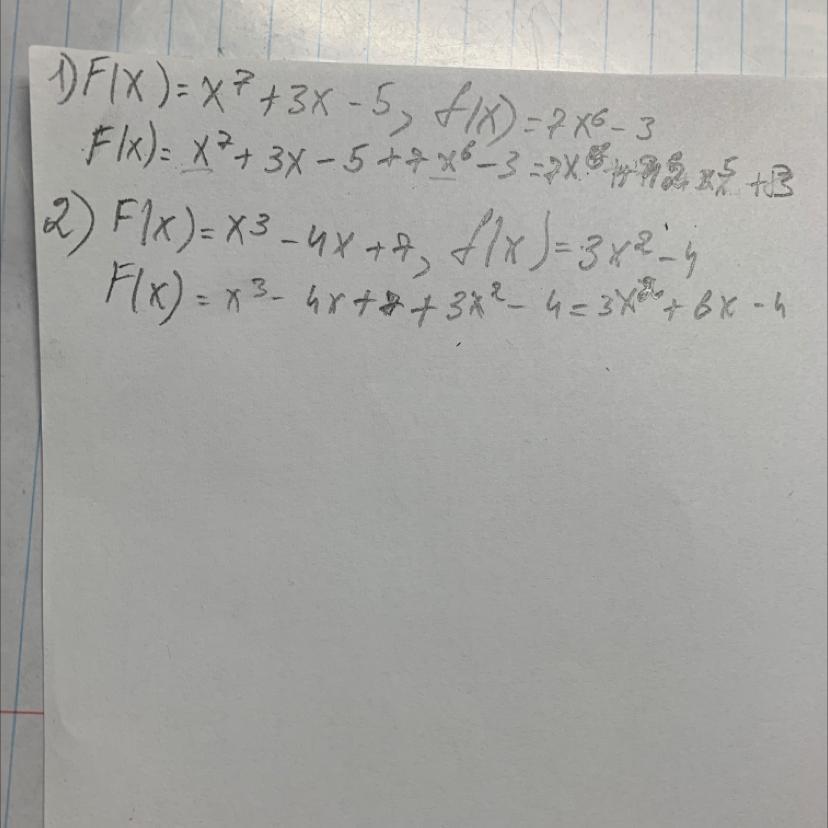 1) F(x) = x⁷ + 3x - 5, f(x) = 7x⁶ - 3
F(x) = x⁷ + 3x - 5 + 7x⁶ - 3 = 7x⁶ + 42 x⁵ + 3
2) F(x) = x³ - 4x + 7, f(x) = 3x² - 4
F(x) = x³ - 4x + 7 + 3x² - 4 = 3x² + 6x - 4